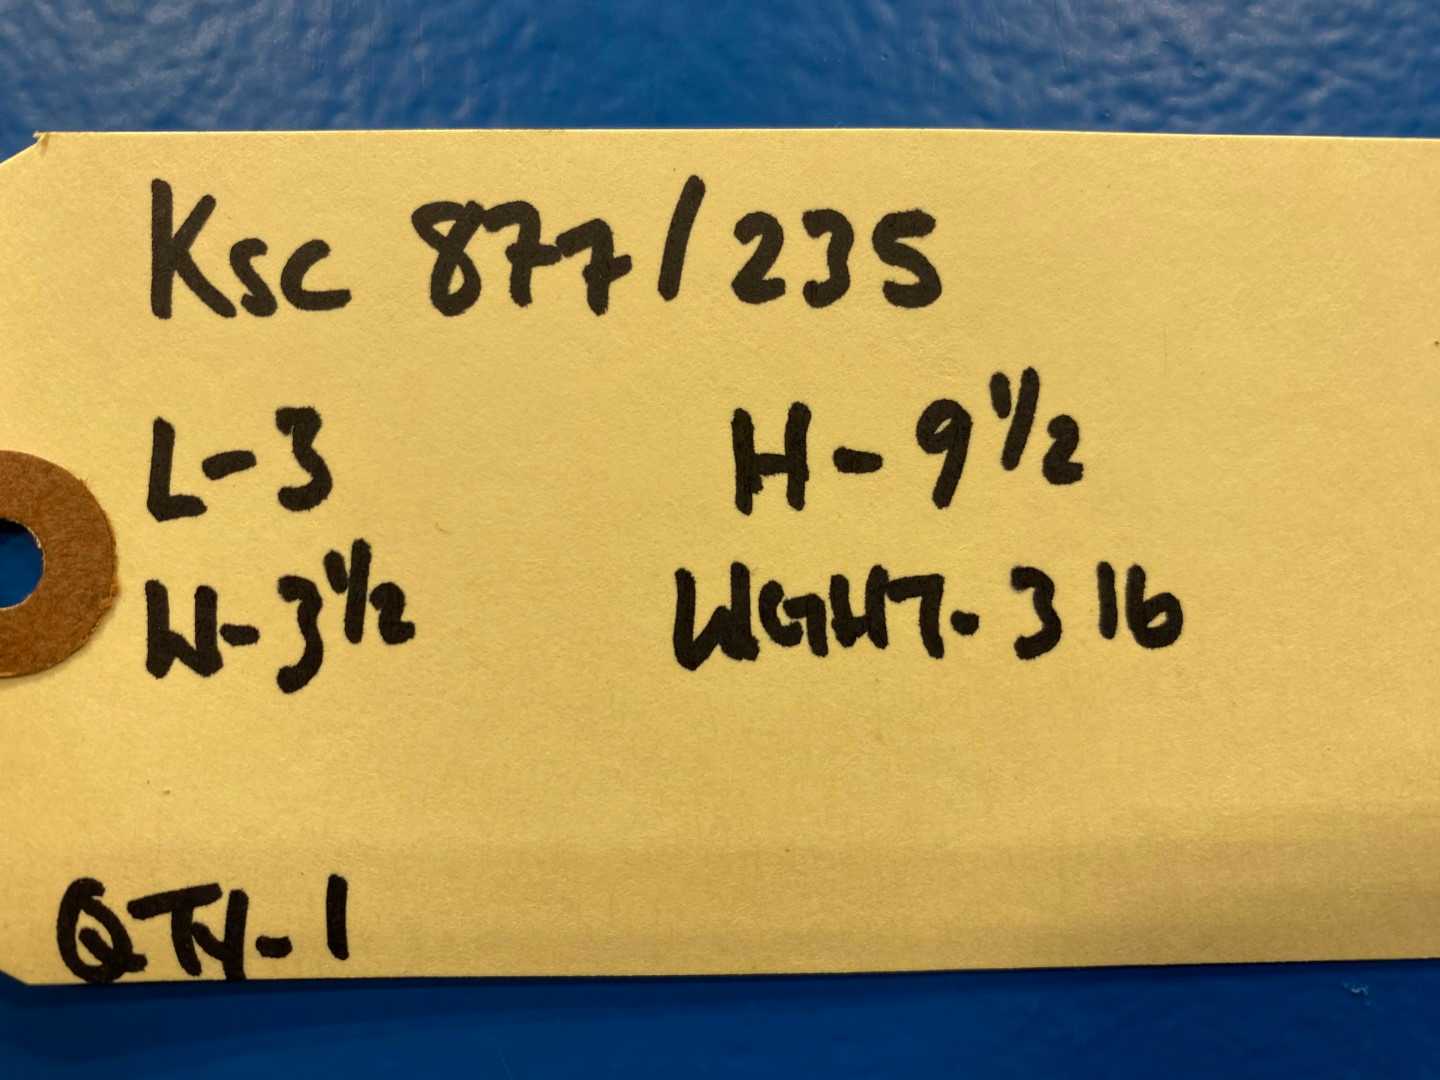 Ksc 877/235
L-3 H-9 1/2
W-3 1/2 WGHT-3 lb
QTY-1